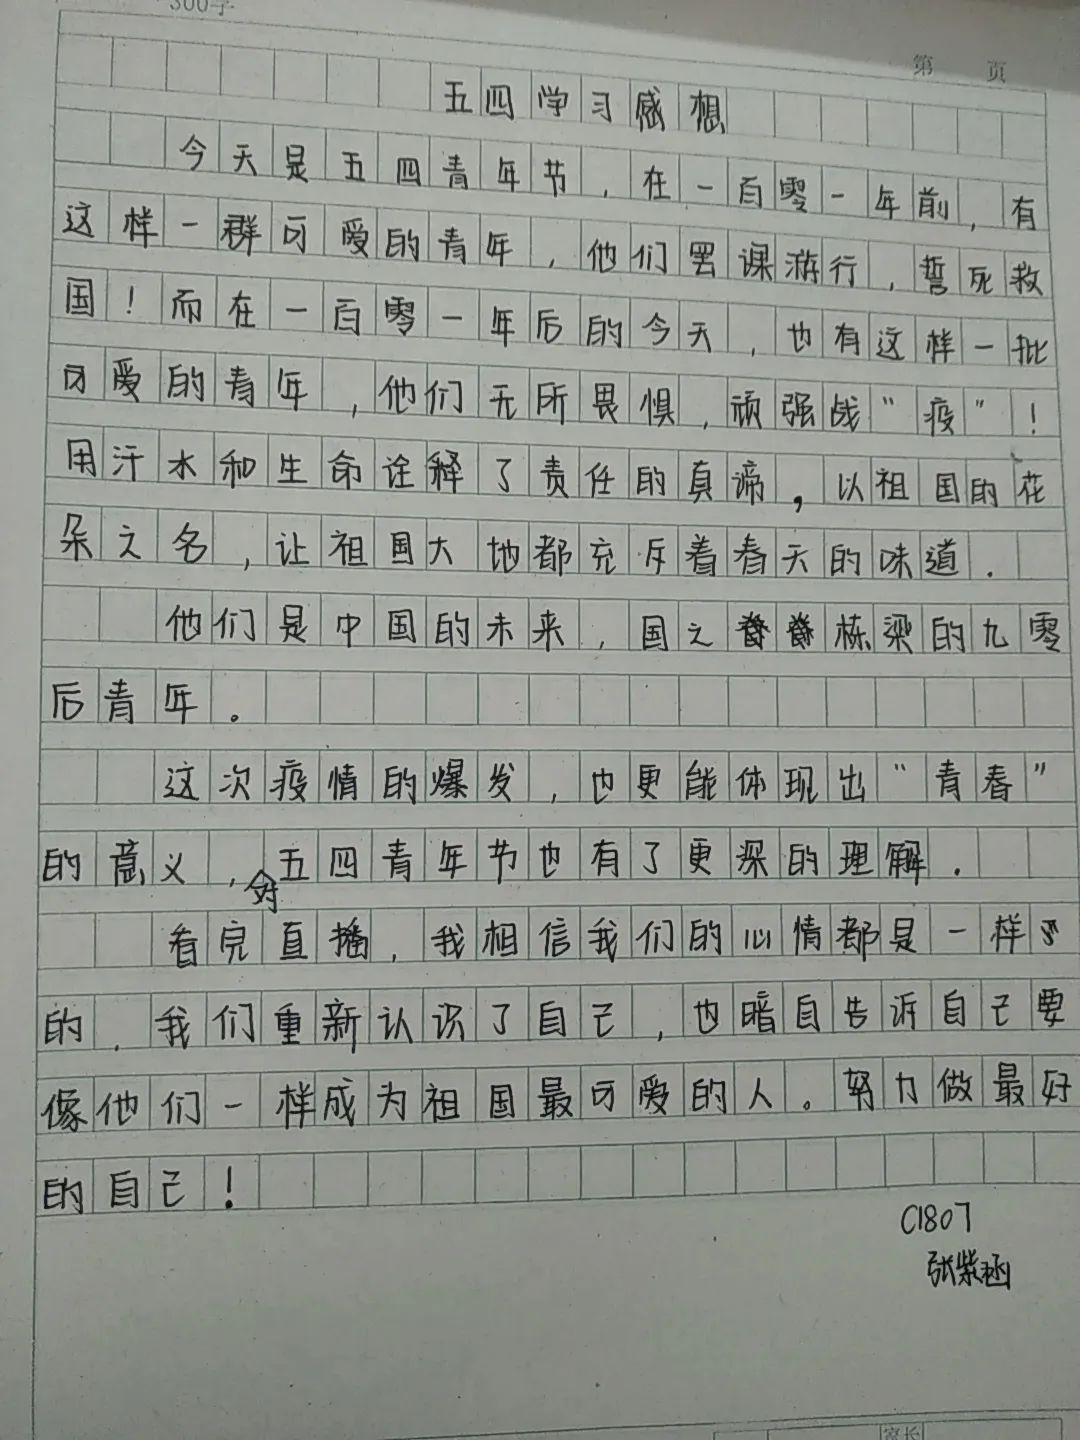 300字
第 页
五四学习感想
今天是五四青年节，在一百零一年前，有
这样一群可爱的青年，他们罢课游行，誓死救
国！而在一百零一年后的今天，也有这样一批
可爱的青年，他们无所畏惧，顽强战“疫”！
用汗水和生命诠释了责任的真谛，以祖国的花
朵之名，让祖国大地都充斥着春天的味道．
他们是中国的未来，国之脊栋梁的九零
后青年。
这次疫情的爆发，也更能体现出“青春”
的意义，对五四青年节也有了更深的理解．
看完直播，我相信我们的心情都是一样
的．我们重新认识了自己，也暗自告诉自己要
像他们一样成为祖国最可爱的人。努力做最好
的自己！
C1807
张紫涵
家长